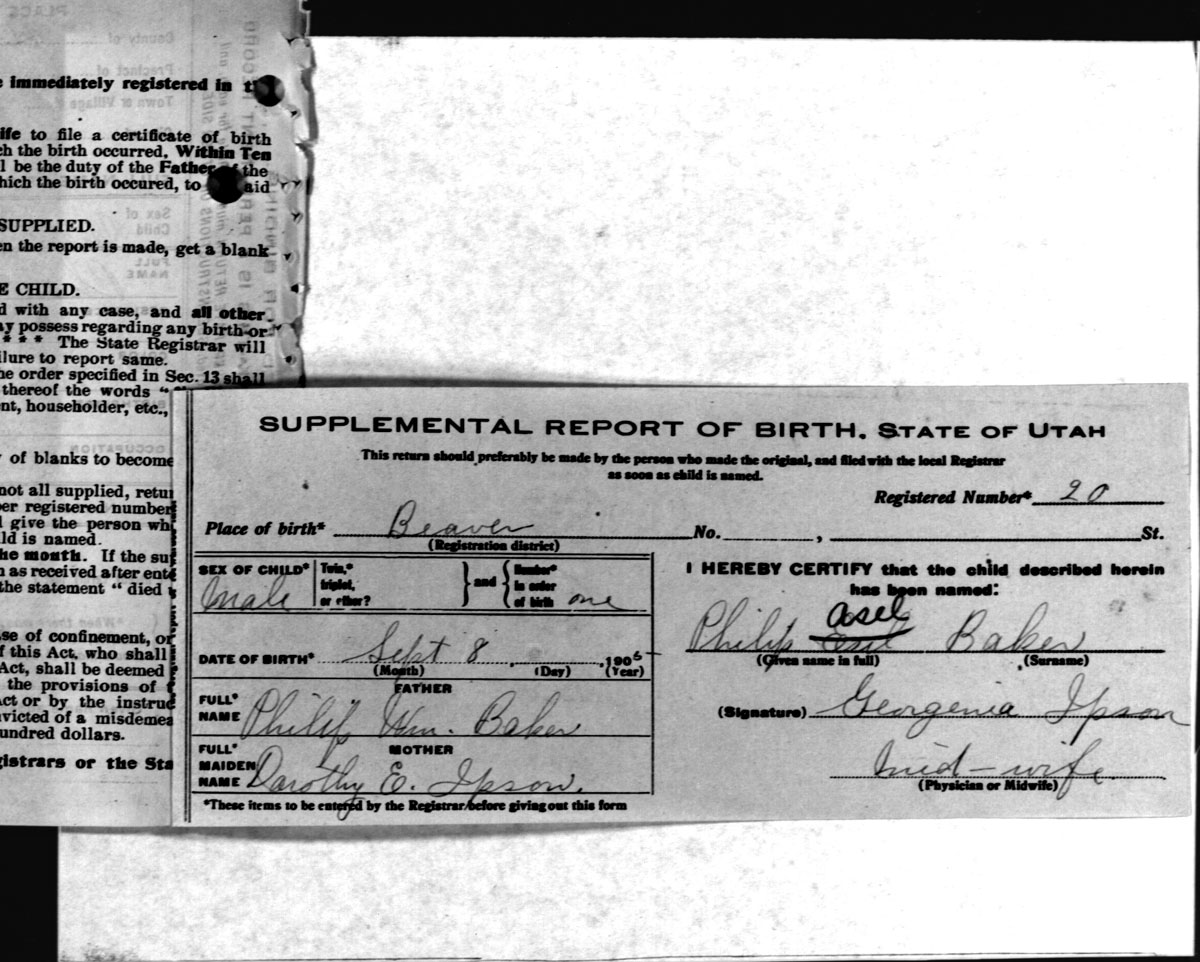 e immediately registered in t
ife to file a certificate of birth
ch the birth occurred, Within Ten
l be the duty of the Father of the
hich the birth occured, to aid
SUPPLIED.
en the report is made, get a blank
E CHILD.
d with any case, and all other
ay possess regarding any birth or
* * * The State Registrar will
ilure to report same.
he order specified in Sec. 13 shall
thereof the words "
nt, householder, etc.,
of blanks to become
not all supplied, retur
er registered number
l give the person wh
ld is named.
he month. If the su
n as received after ente
the statement "died
se of confinement, or
f this Act, who shall
Act, shall be deemed
the provisions of
Act or by the instruc
nvicted of a misdemea
undred dollars.
gistrars or the Sta
SUPPLEMENTAL REPORT OF BIRTH. STATE OF UTAH
This return should preferably be made by the person who made the original, and filed with the local Registrar
as soon as child is named.
Registered Number* 20
Place of birth* Beaver No. , St.
(Registration district)
SEX OF CHILD* Male
Twin,* triplet, or other? and Number* in order of birth one
DATE OF BIRTH* Sept 8 1905
(Month) (Day) (Year)
FATHER
FULL* NAME Philip Wm. Baker
MOTHER
FULL* MAIDEN NAME Darothy E. Ipson.
*These items to be entered by the Registrar before giving out this form
I HEREBY CERTIFY that the child described herein
has been named:
asel
Philip Baker
(Given name in full) (Surname)
(Signature) Georgenia Ipson
Mid-wife
(Physician or Midwife)